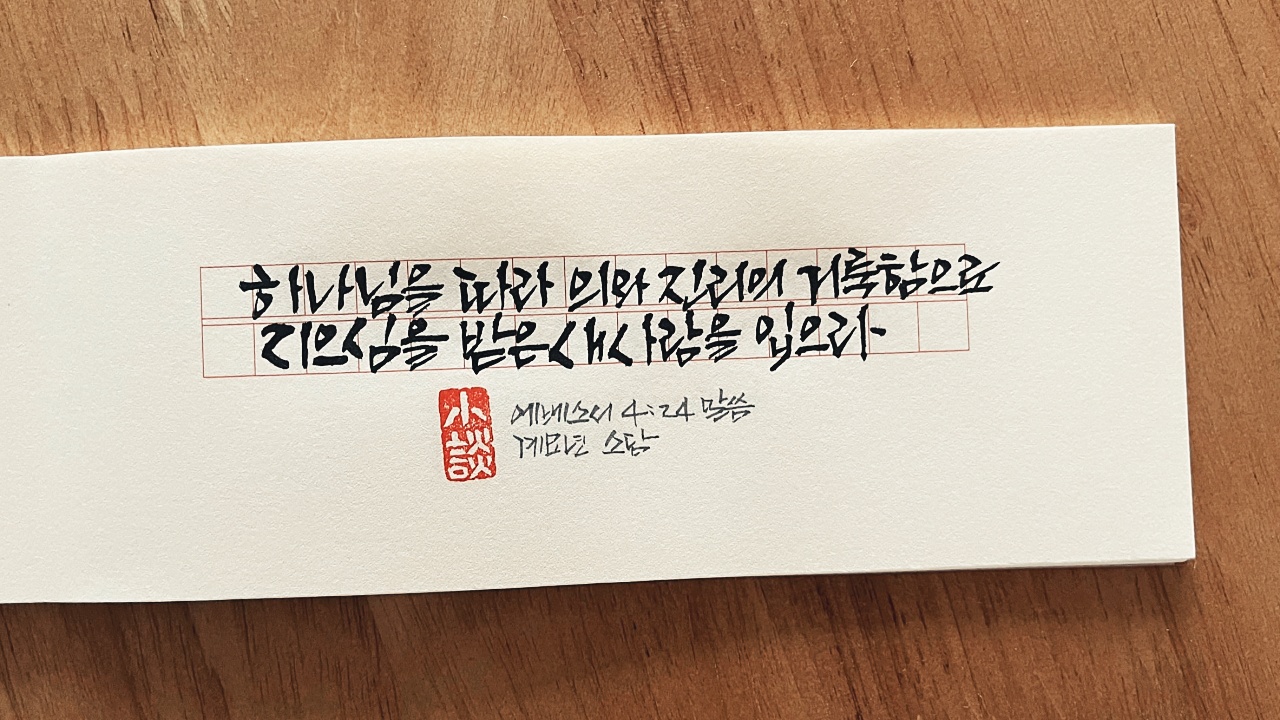 하나님을 따라 의와 진리의 거룩함으로
지으심을 받은 새사람을 입으라
小談
에베소서 4:24 말씀
계묘년 소담